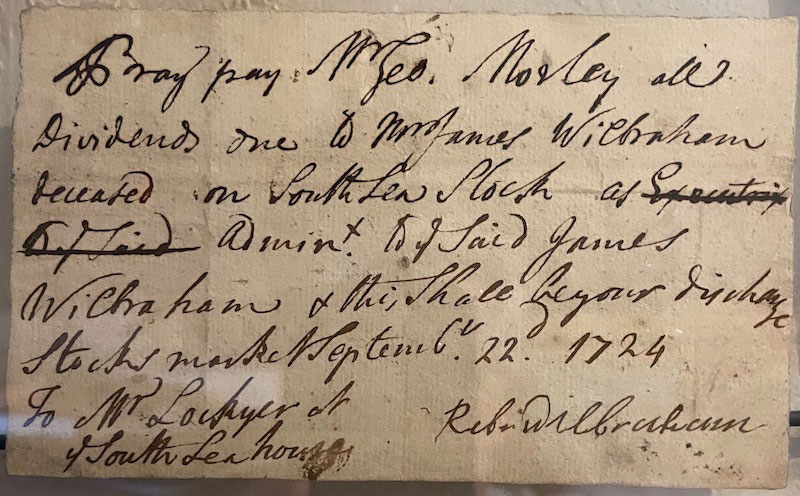 Pray pay Mr Geo. Morley all
Dividends due to Mr James Wilbraham
deceased on South Sea Stock as Executrix
to ye Said Adminx. to ye Said James
Wilbraham & this Shall be your discharge
Stocks market Septembr. 22d. 1724
To Mr Lockyer at
ye South Sea house
Wilbraham